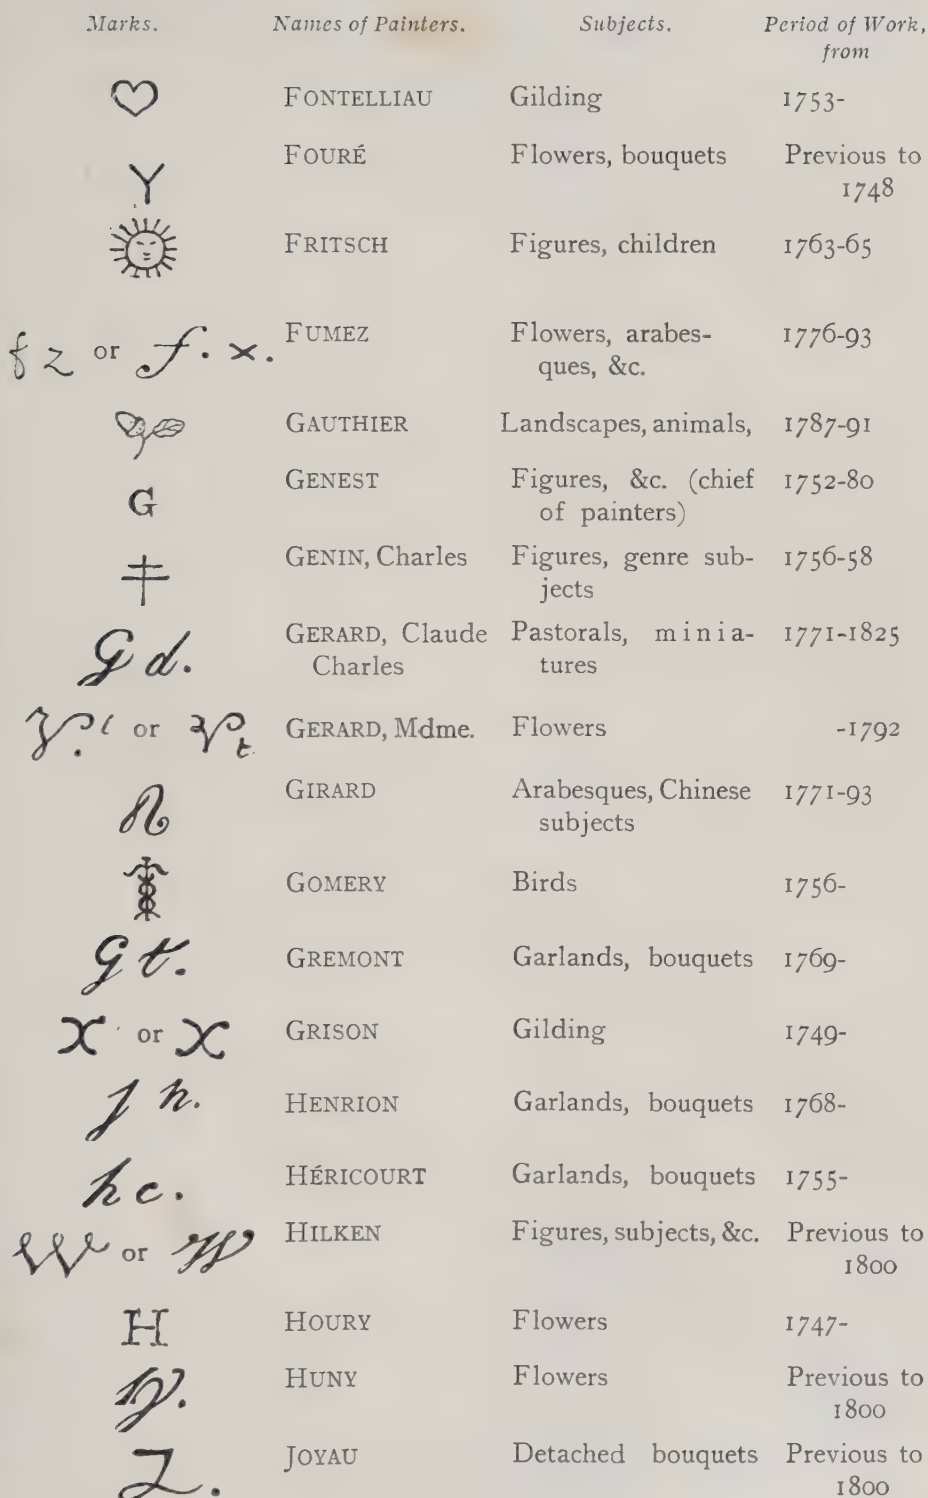 Marks. Names of Painters. Subjects. Period of Work,
from
FONTELLIAU Gilding 1753-
FOURÉ Flowers, bouquets Previous to
Y 1748
FRITSCH Figures, children 1763-65
fz or f. x. FUMEZ Flowers, arabes- 1776-93
ques, &c.
GAUTHIER Landscapes, animals, 1787-91
GENEST Figures, &c. (chief 1752-80
G of painters)
GENIN, Charles Figures, genre sub- 1756-58
jects
Gd. GERARD, Claude Pastorals, minia- 1771-1825
Charles tures
or GERARD, Mdme. Flowers -1792
GIRARD Arabesques, Chinese 1771-93
subjects
GOMERY Birds 1756-
Gt. GREMONT Garlands, bouquets 1769-
X or X GRISON Gilding 1749-
j h. HENRION Garlands, bouquets 1768-
hc. HÉRICOURT Garlands, bouquets 1755-
W or W HILKEN Figures, subjects, &c. Previous to
1800
H HOURY Flowers 1747-
HUNY Flowers Previous to
1800
JOYAU Detached bouquets Previous to
Z. 1800